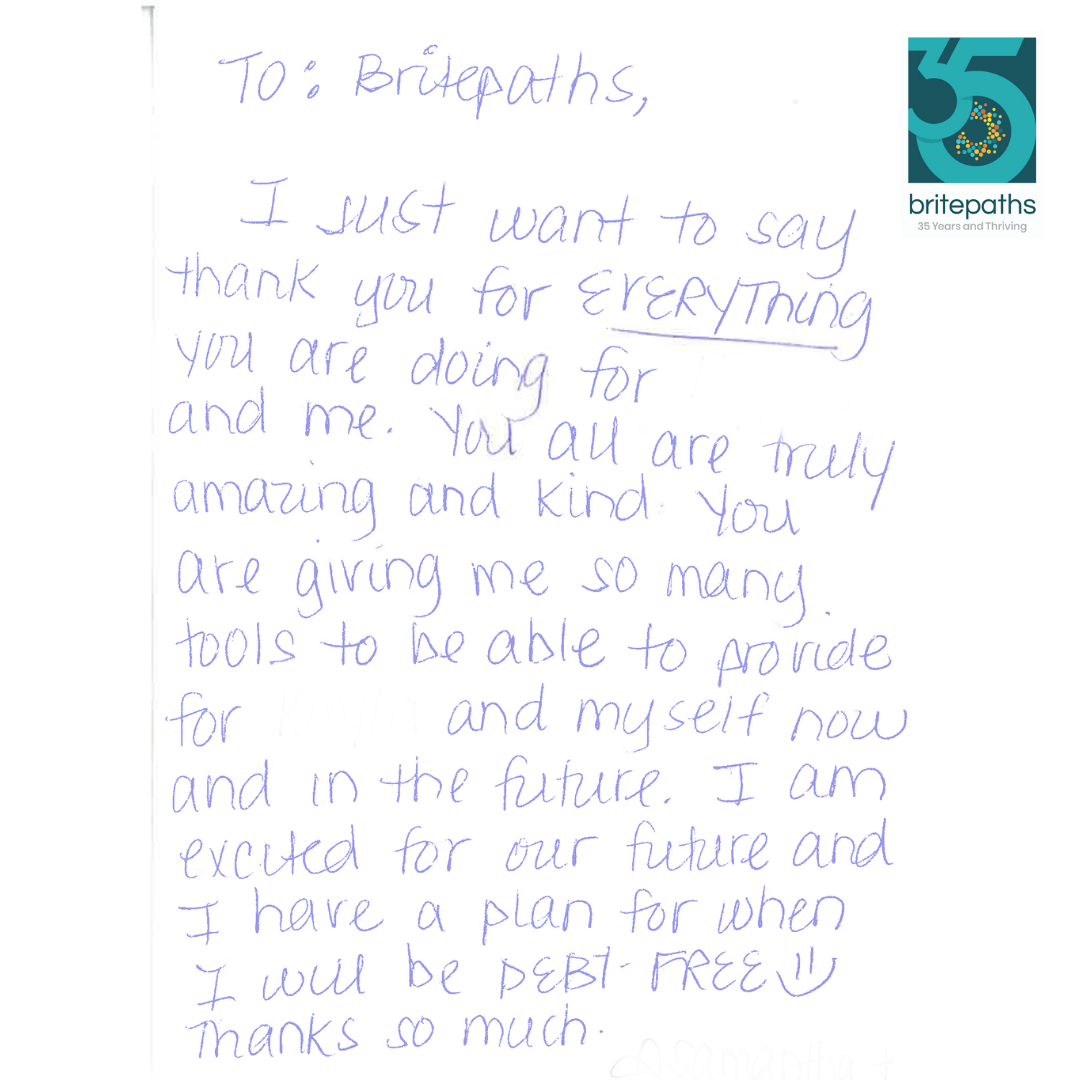 To: Britepaths,
I just want to say
thank you for EVERYThing
you are doing for
and me. You all are truly
amazing and kind. You
are giving me so many
tools to be able to provide
for and myself now
and in the future. I am
excited for our future and
I have a plan for when
I will be DEBT-FREE
Thanks so much.
Samantha +
35
britepaths
35 Years and Thriving